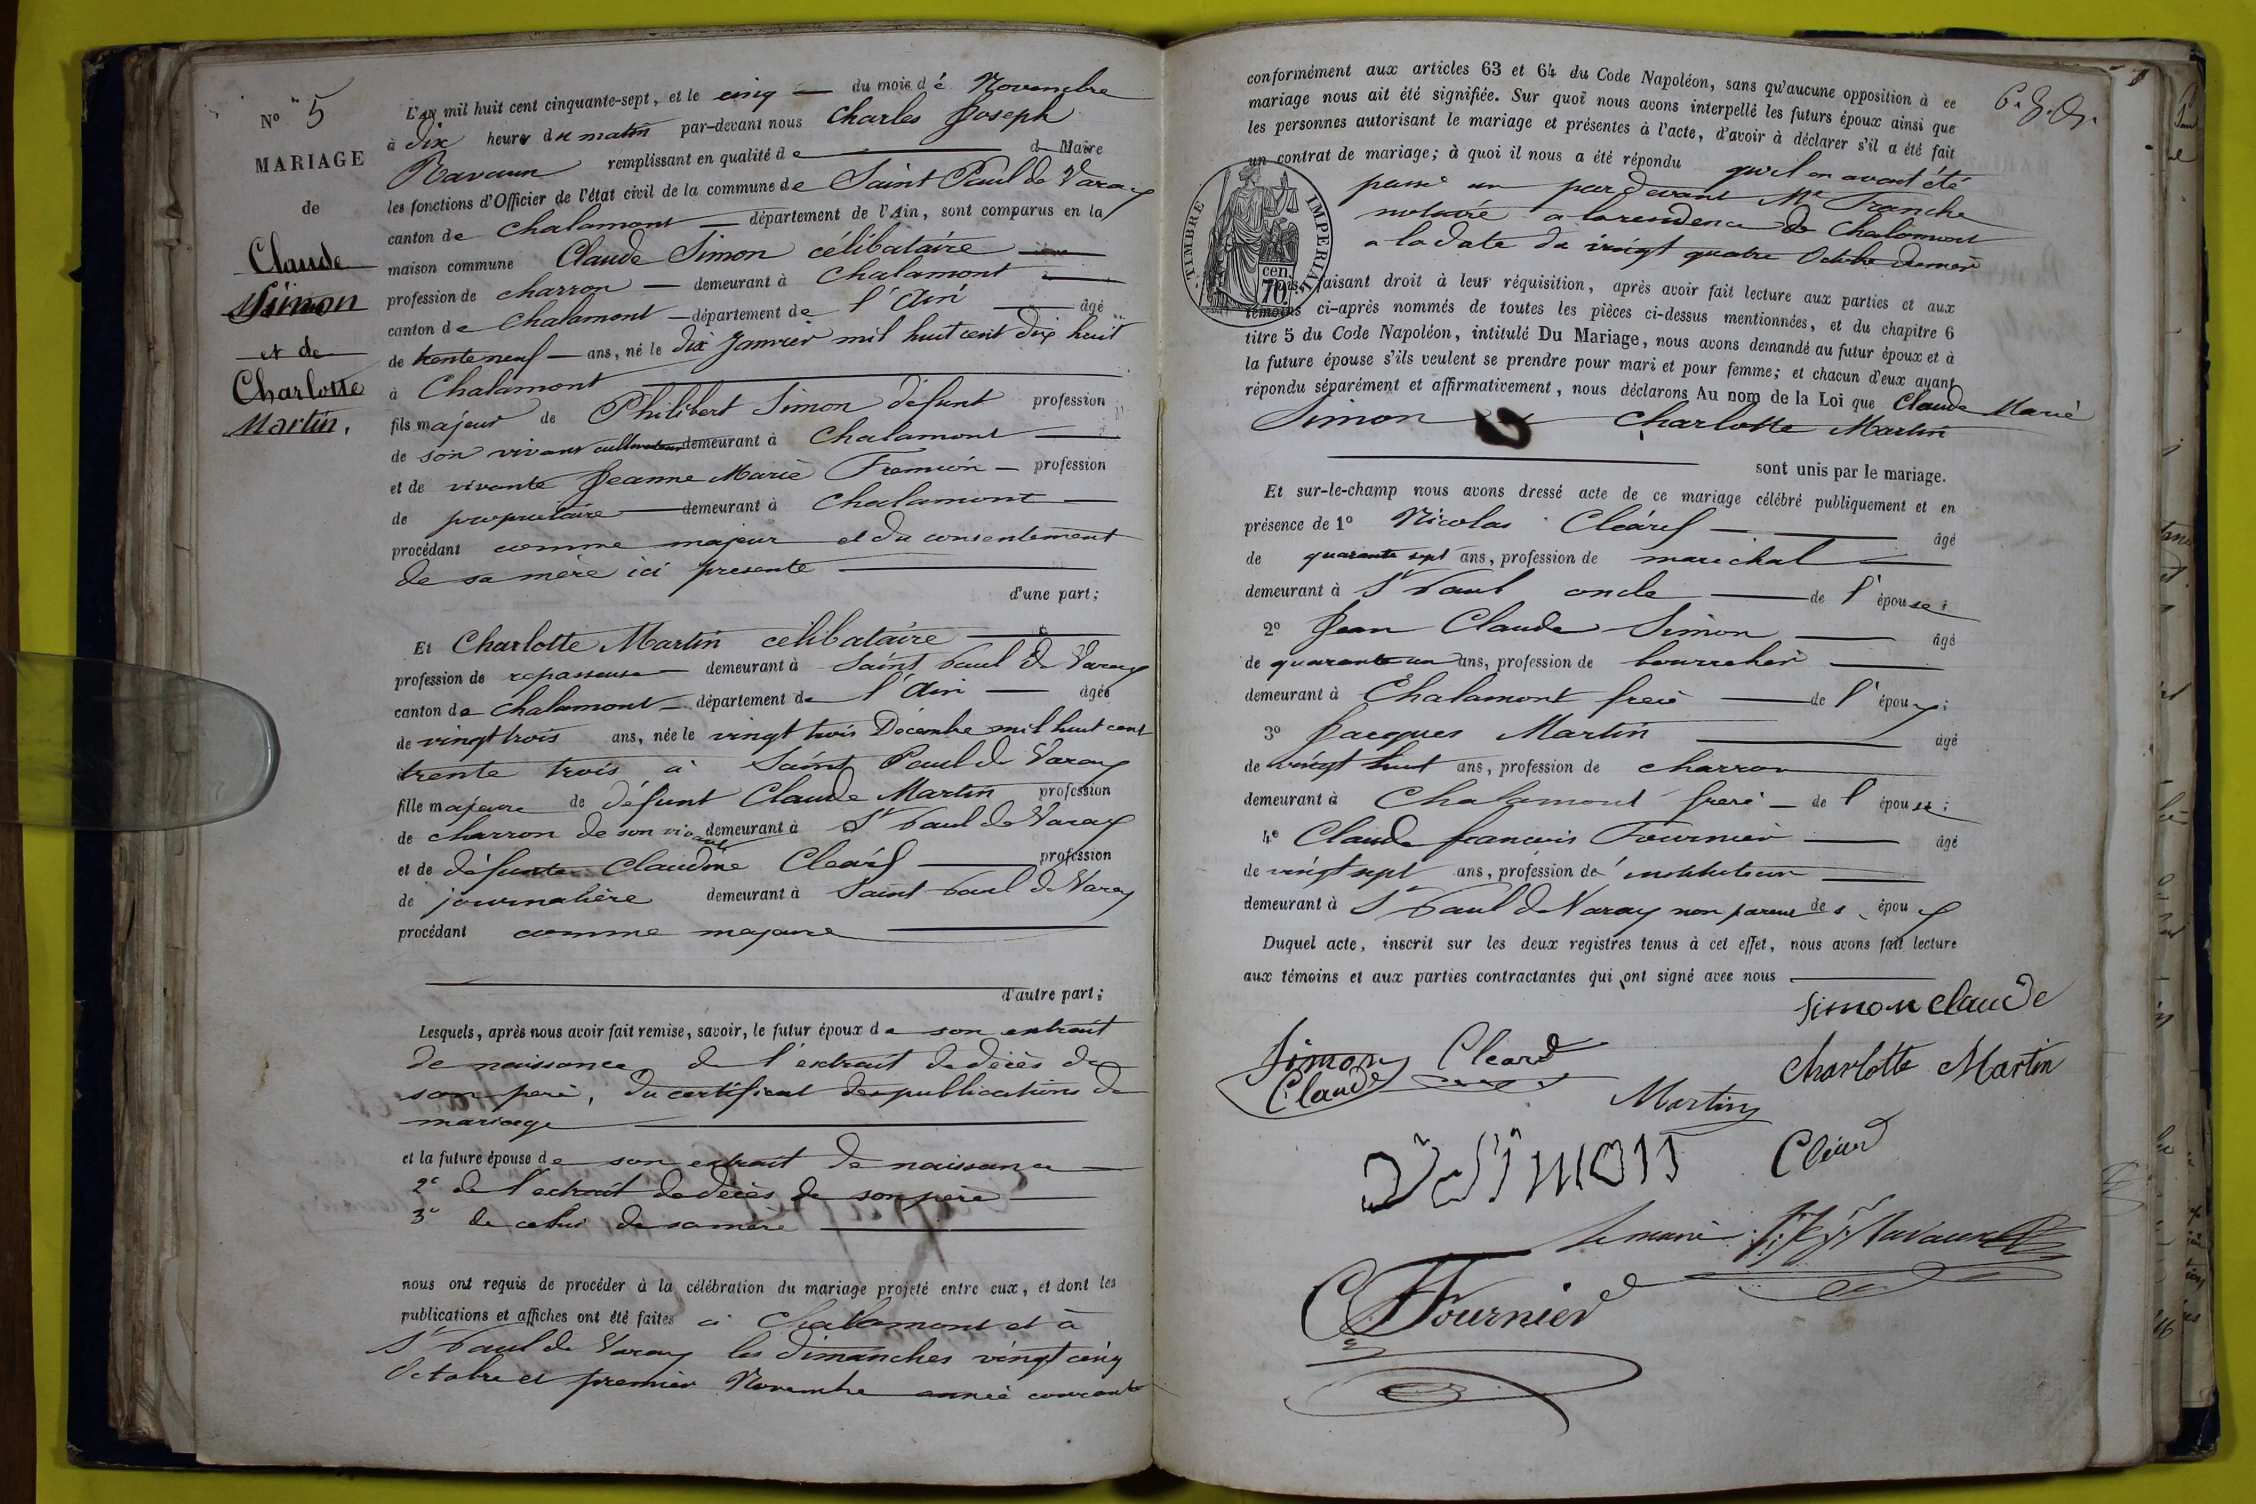 N° 5
MARIAGE
de
Claude
Simon
et de
Charlotte
Martin.
L'an mil huit cent cinquante-sept, et le cinq du mois de Novembre
à dix heures du matin par-devant nous Charles Joseph
remplissant en qualité de Maire
les fonctions d'Officier de l'état civil de la commune de Saint Paul de Varax
canton de Chalamont département de l'Ain, sont comparus en la
maison commune Claude Simon célibataire
profession de charron demeurant à Chalamont
canton de Chalamont département de l'Ain âgé
de trente neuf ans, né le dix Janvier mil huit cent dix huit
à Chalamont
fils majeur de Philibert Simon défunt profession
de son vivant cultivateur demeurant à Chalamont
et de vivante Jeanne Marie profession
de propriétaire demeurant à Chalamont
procédant comme majeur et du consentement
de sa mère ici presente
d'une part;
Et Charlotte Martin célibataire
profession de repasseuse demeurant à Saint Paul de Varax
canton de Chalamont département de l'Ain âgée
de vingt trois ans, née le vingt trois Décembre mil huit cent
trente trois à Saint Paul de Varax
fille majeure de défunt Claude Martin profession
de charron de son vivant demeurant à St Paul de Varax
et de défunte Claudine Cleard profession
de journalière demeurant à Saint Paul de Varax
procédant comme majeure
d'autre part;
Lesquels, après nous avoir fait remise, savoir, le futur époux de son extrait
de naissance de l'extrait de décès de
son père, du certificat des publications de
mariage
et la future épouse de son extrait de naissance
2° de l'extrait de décès de son père
3° de celui de sa mère
nous ont requis de procéder à la célébration du mariage projeté entre eux, et dont les
publications et affiches ont été faites à Chalamont et à
St Paul de Varax les dimanches vingt cinq
Octobre et premier Novembre année courante
conformément aux articles 63 et 64 du Code Napoléon, sans qu'aucune opposition à ce
mariage nous ait été signifiée. Sur quoi nous avons interpellé les futurs époux ainsi que
les personnes autorisant le mariage et présentes à l'acte, d'avoir à déclarer s'il a été fait
un contrat de mariage; à quoi il nous a été répondu qu'il en avait été
passé un par devant Me Tranche
notaire a la residence de Chalamont
a la date du vingt quatre Octobre dernier
TIMBRE IMPERIAL
70 cen.
faisant droit à leur réquisition, après avoir fait lecture aux parties et aux
témoins ci-après nommés de toutes les pièces ci-dessus mentionnées, et du chapitre 6
titre 5 du Code Napoléon, intitulé Du Mariage, nous avons demandé au futur époux et à
la future épouse s'ils veulent se prendre pour mari et pour femme; et chacun d'eux ayant
répondu séparément et affirmativement, nous déclarons Au nom de la Loi que Claude Marie
Simon et Charlotte Martin
sont unis par le mariage.
Et sur-le-champ nous avons dressé acte de ce mariage célébré publiquement et en
présence de 1° Nicolas Cleard âgé
de quarante sept ans, profession de marechal
demeurant à St Paul oncle de l'épouse;
2° Jean Claude Simon âgé
de quarante un ans, profession de bourrelier
demeurant à Chalamont frere de l'époux;
3° Jacques Martin âgé
de vingt huit ans, profession de charron
demeurant à Chalamont frere de l'épouse;
4° Claude francois Fournier âgé
de vingt sept ans, profession de instituteur
demeurant à St Paul de Varax non parent des époux
Duquel acte, inscrit sur les deux registres tenus à cet effet, nous avons fait lecture
aux témoins et aux parties contractantes qui ont signé avec nous
Simon claude
Simon Claude
Cleard
charlotte Martin
Martin
Simon
Cléard
Le maire
Fournier